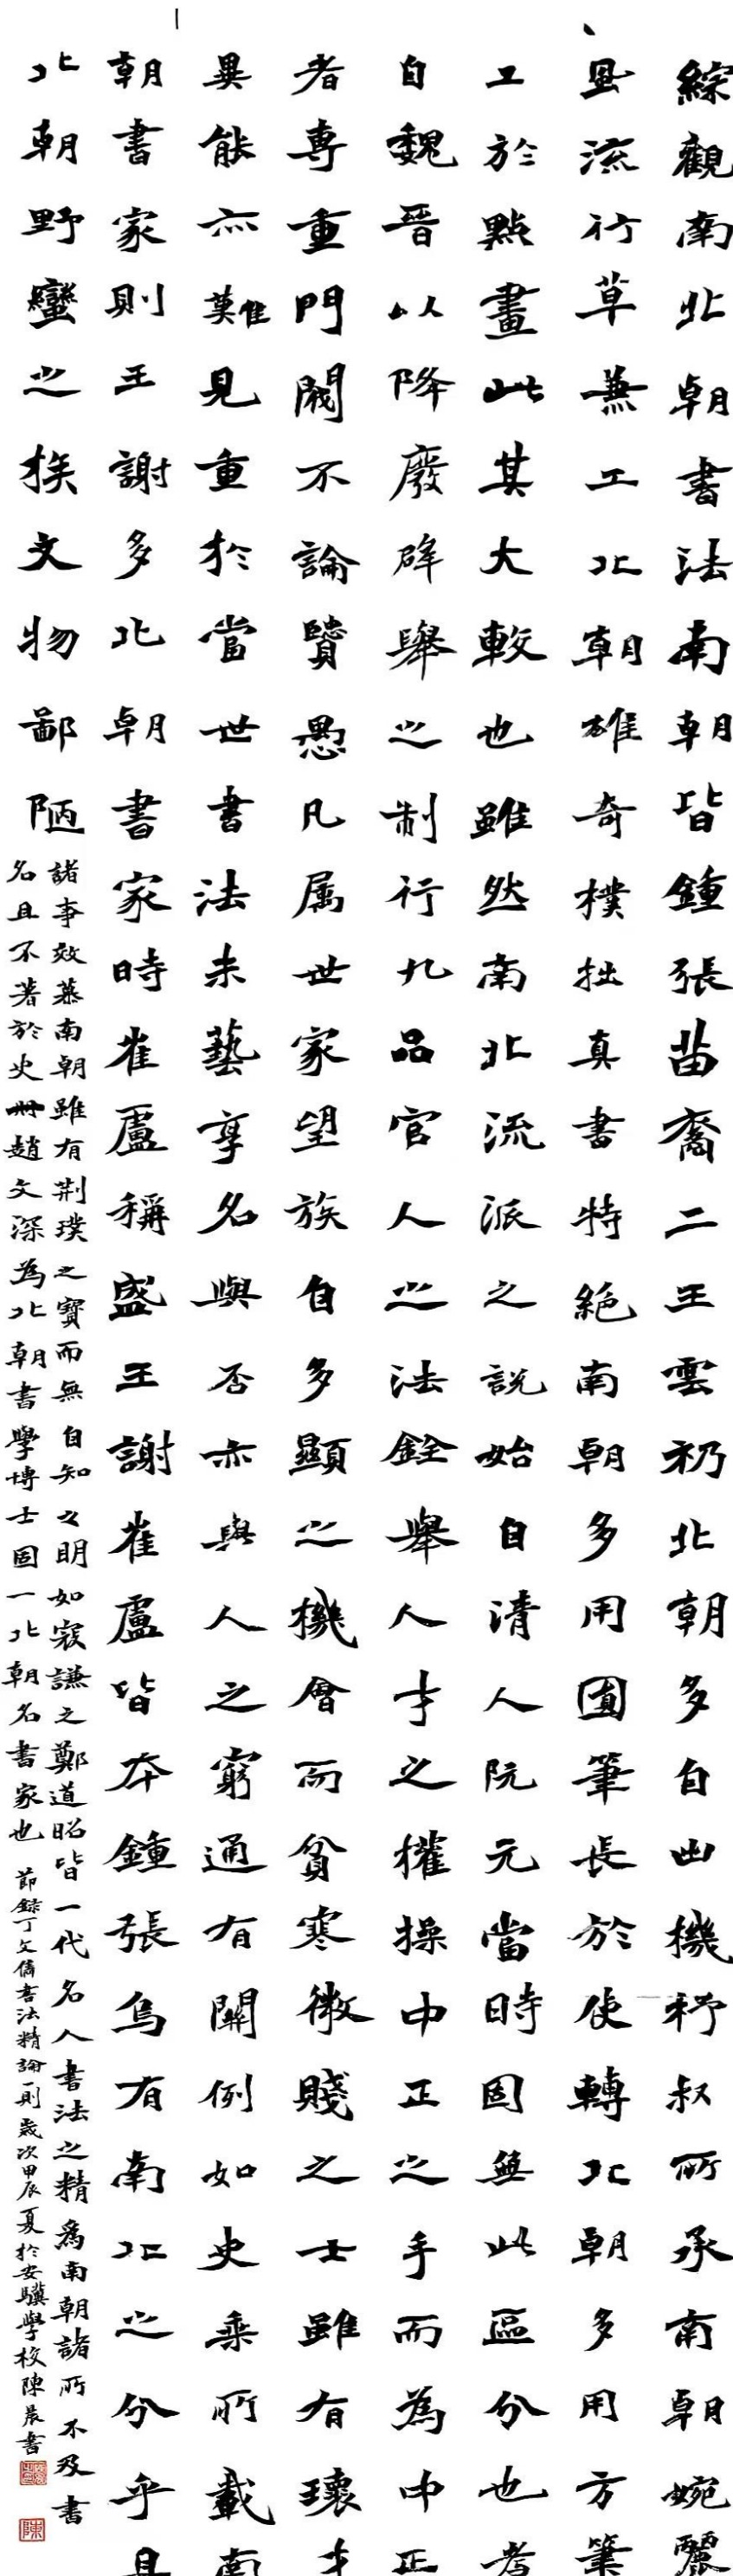 綜觀南北朝書法南朝皆鍾張苗裔二王雲礽北朝多自出機杼叔所承南朝婉麗
風流行草兼工北朝雄奇樸拙真書特絕南朝多用圓筆長於使轉北朝多用方筆
工於點畫此其大較也雖然南北流派之說始自清人阮元當時固無此區分也考
自魏晉以降廢辟舉之制行九品官人之法銓舉人才之權操中正之手而為中正
者專重門閥不論賢愚凡屬世家望族自多顯之機會而貧寒微賤之士雖有瓌才
異能亦莫難見重於當世書法末藝享名與否亦與人之窮通有關例如史乘所載南
朝書家則王謝多北朝書家時崔盧稱盛王謝崔盧皆本鍾張烏有南北之分乎且
北朝野蠻之族文物鄙陋
諸事效慕南朝雖有荊璞之寶而無自知之明如寇謙之鄭道昭皆一代名人書法之精為南朝諸所不及書
名且不著於史冊趙文深為北朝書學博士固一北朝名書家也
節錄丁文雋書法精論一則歲次甲辰夏於安驥學校陳晨書
陳